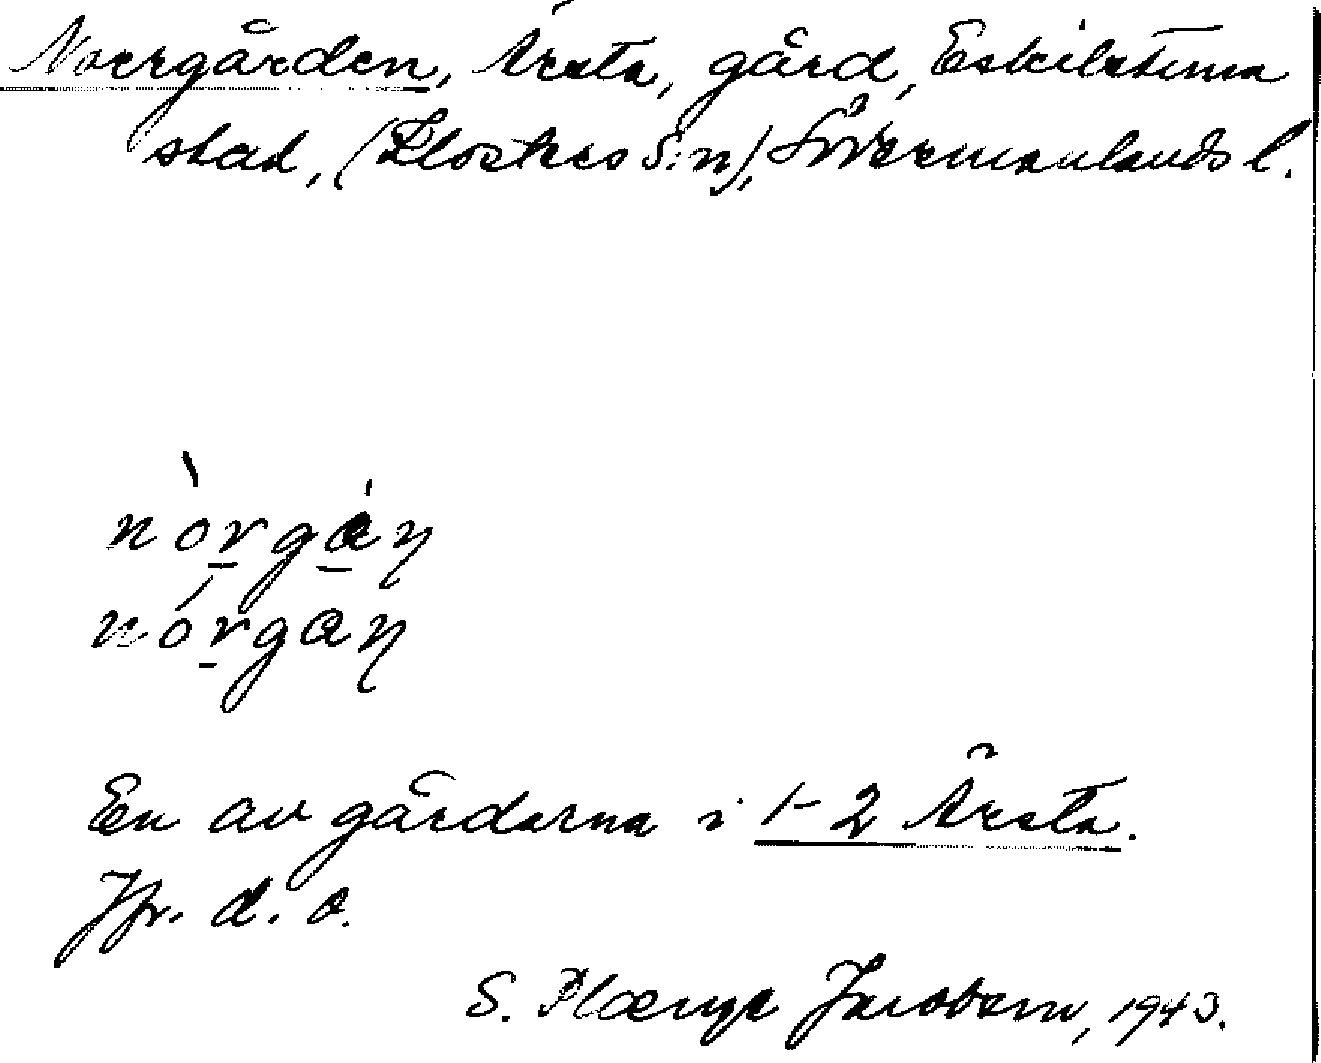 Norrgården, Årsta, gård, Eskilstuna
stad, (Klosters S:n), Södermanlands l.
nòrgȧn
nórgan
En av gårdarna i 1-2 Årsta.
Jfr. d. o.
S. Jacobsen, 1943.